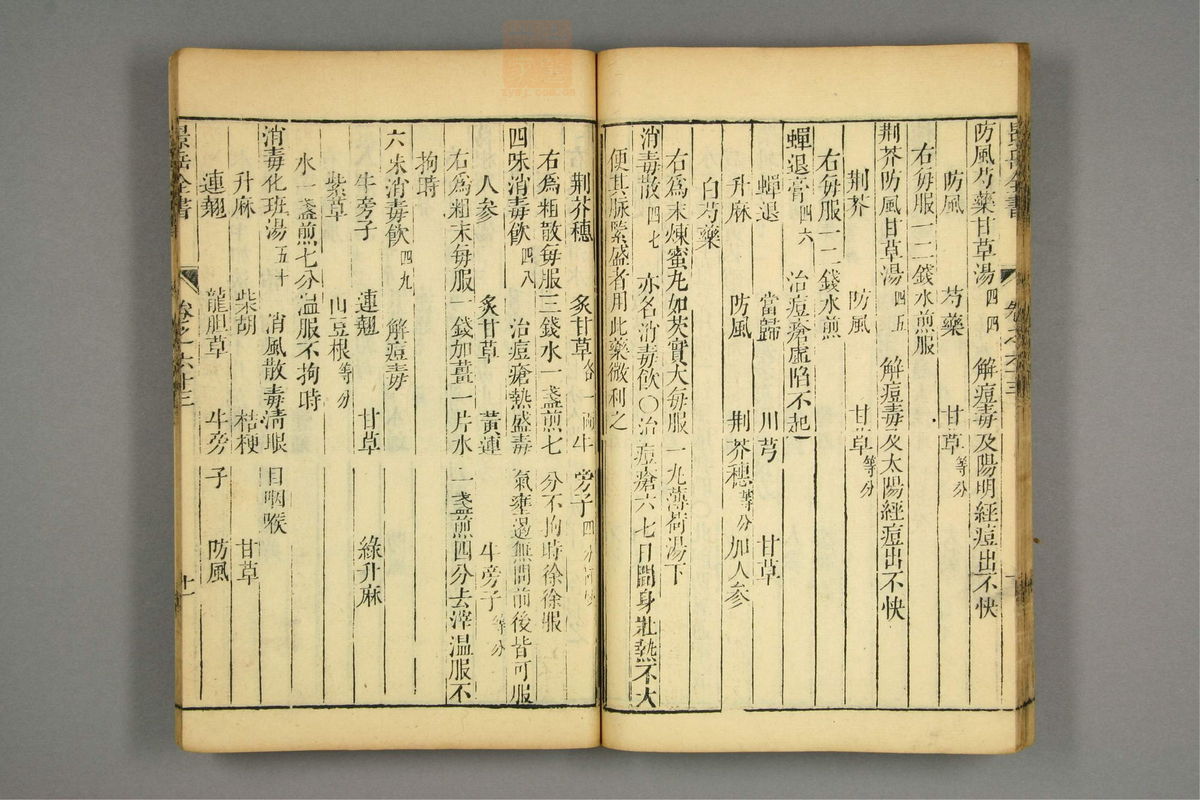 景岳全書
卷之六十三
防風芍藥甘草湯 四四 解痘毒及陽明經痘出不快
防風 芍藥 甘草 等分
右每服一二錢水煎服
荆芥防風甘草湯 四五 解痘毒及太陽經痘出不快
荆芥 防風 甘草 等分
右每服一二錢水煎
蟬退膏 四六 治痘瘡虛陷不起
蟬退 當歸 川芎 甘草
升麻 防風 荆芥穗 等分 加人參
白芍藥
右爲末煉蜜丸如芡實大每服一丸薄荷湯下
消毒散 四七 亦名消毒飲〇治痘瘡六七日間身壯熱不大
便其脉緊盛者用此藥微利之
荆芥穗 炙甘草 各一兩 牛旁子 四兩
右爲粗散每服三錢水一盞煎七分不拘時徐徐服
四味消毒飲 四八 治痘瘡熱盛毒氣壅遏無問前後皆可服
人參 炙甘草 黃連 牛旁子 等分
右爲粗末每服一錢加薑一片水一盞煎四分去滓温服不
拘時
六味消毒飲 四九 解痘毒
牛旁子 連翹 甘草 綠升麻
紫草 山豆根 等分
水一盞煎七分温服不拘時
消毒化班湯 五十 消風散毒清眼目咽喉
升麻 柴胡 桔梗 甘草
連翹 龍胆草 牛旁子 防風
景岳全書
卷之六十三
十一